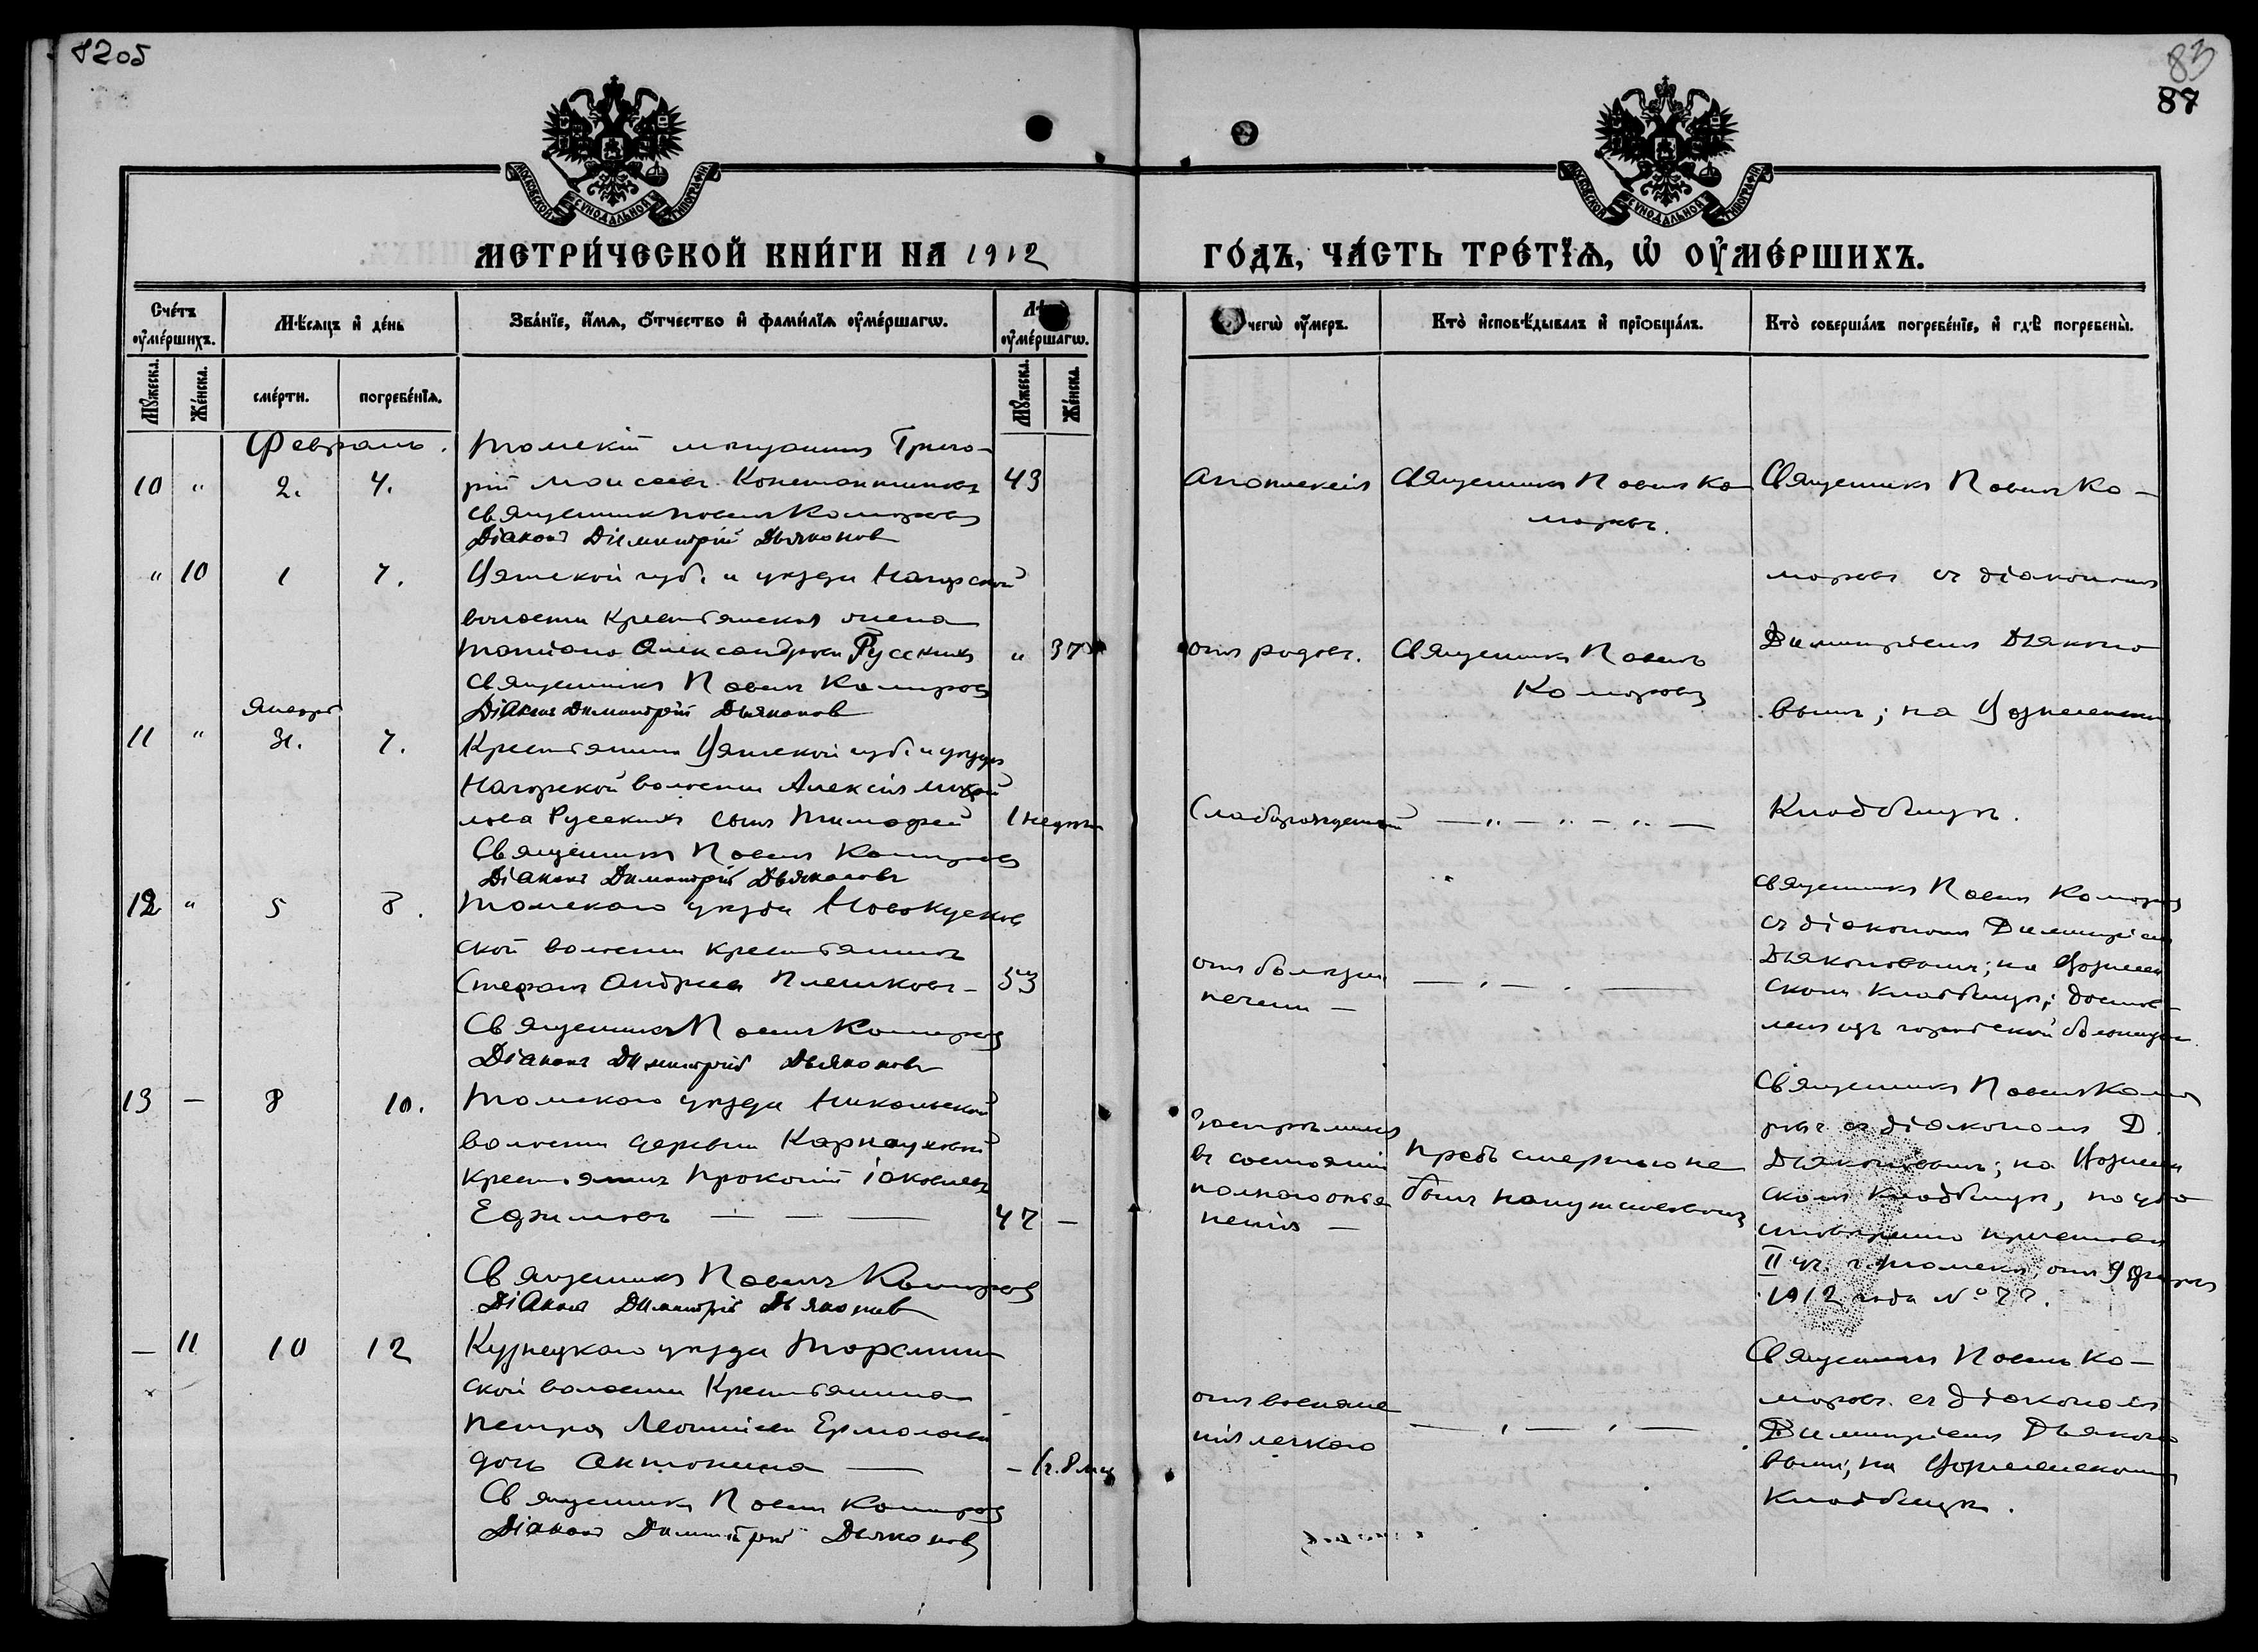 8205
83
87
МОСКОВСКОЙ СѴНОДАЛЬНОЙ ТИПОГРАФІИ
МОСКОВСКОЙ СѴНОДАЛЬНОЙ ТИПОГРАФІИ
МЕТРИ́ЧЕСКОЙ КНИ́ГИ НА 1912
ГО́ДЪ, ЧА́СТЬ ТРЕ́ТЇѦ, Ѡ҆ ОУ҆МЕ́РШИХЪ.
Сче́тъ оу҆ме́ршихъ.
Мѣ́сяцъ и҆ де́нь
Зва́нїе, и҆́мѧ, ѻ҆́тчество и҆ фами́лїѧ оу҆ме́ршагѡ.
оу҆ме́ршагѡ.
чегѡ̀ оу҆́меръ.
Кто̀ и҆сповѣ́дывалъ и҆ прїобща́лъ.
Кто̀ соверша́лъ погребе́нїе, и҆ гдѣ̀ погребены̀.
Мꙋ́жеска.
Же́нска.
сме́рти.
погребе́нїѧ.
Мꙋ́жеска.
Же́нска.
Февраль.
Томскій мѣщанинъ Григо-
10 " 2. 4. рій Моисеевъ Константиновъ 43
Священникъ Павелъ Комаровъ
Діаконъ Димитрій Дьяконовъ
Апоплексія
Священникъ Павелъ Ко-
маровъ.
Священникъ Павелъ Ко-
" 10 1 7. Вятской губ. и уѣзда Нагорской
волости крестьянская жена
Татіана Александрова Русскихъ " 37
Священникъ Павелъ Комаровъ
Діаконъ Димитрій Дьяконов
отъ родовъ.
Священникъ Павелъ
Комаровъ
маровъ съ діакономъ
Димитріемъ Дьяконо
вымъ; на Вознесенском
Январь
11 " 31. 7. Крестьянина Вятской губ. и уѣзда
Нагорской волости Алексія Михай
лова Русскихъ сынъ Тимофей 1 недѣли
Священникъ Павелъ Комаровъ
Діаконъ Димитрій Дьяконовъ
Слаборожденный
— " — " — " —
Кладбищѣ.
12 " 5 8. Томскаго уѣзда Новокусков
ской волости крестьянинъ
Стефанъ Андреевъ Плешковъ - 53
Священникъ Павелъ Комаровъ
Діаконъ Димитрій Дьяконовъ
отъ болѣзни
печени —
Священникъ Павелъ Комаровъ
съ діакономъ Димитріемъ
Дьяконовымъ; на Вознесен
скомъ кладбищѣ; достав-
ленъ изъ городской больницы.
13 — 8 10. Томскаго уѣзда Никольской
волости деревни Карнауховой
крестьянинъ Прокопій Іаковлевъ
Ефимовъ — — — 47 —
Священникъ Павелъ Комаровъ
Діаконъ Димитрій Дьяконов
Застрѣлился
въ состояніи
полнаго опья
ненія —
Предъ смертью не
былъ напутствованъ
Священникъ Павелъ Кома
ровъ съ діакономъ Д.
Дьяконовымъ; на Вознесен
скомъ кладбищѣ, по удо
стовѣренію пристава
II уч. г. Томска, отъ 9 февраля
1912 года № 77.
— 11 10 12 Кузнецкаго уѣзда Тарсмин
ской волости Крестьянина
Петра Леонтіева Ермолаева
дочь Антонина — — 1 г. 8 мѣс
Священникъ Павелъ Комаровъ
Діаконъ Димитрій Дьяконовъ
отъ воспале
нія легкаго
Священникъ Павелъ Ко-
маровъ съ діакономъ
Димитріемъ Дьяконо
вымъ; на Вознесенскомъ
кладбищѣ.